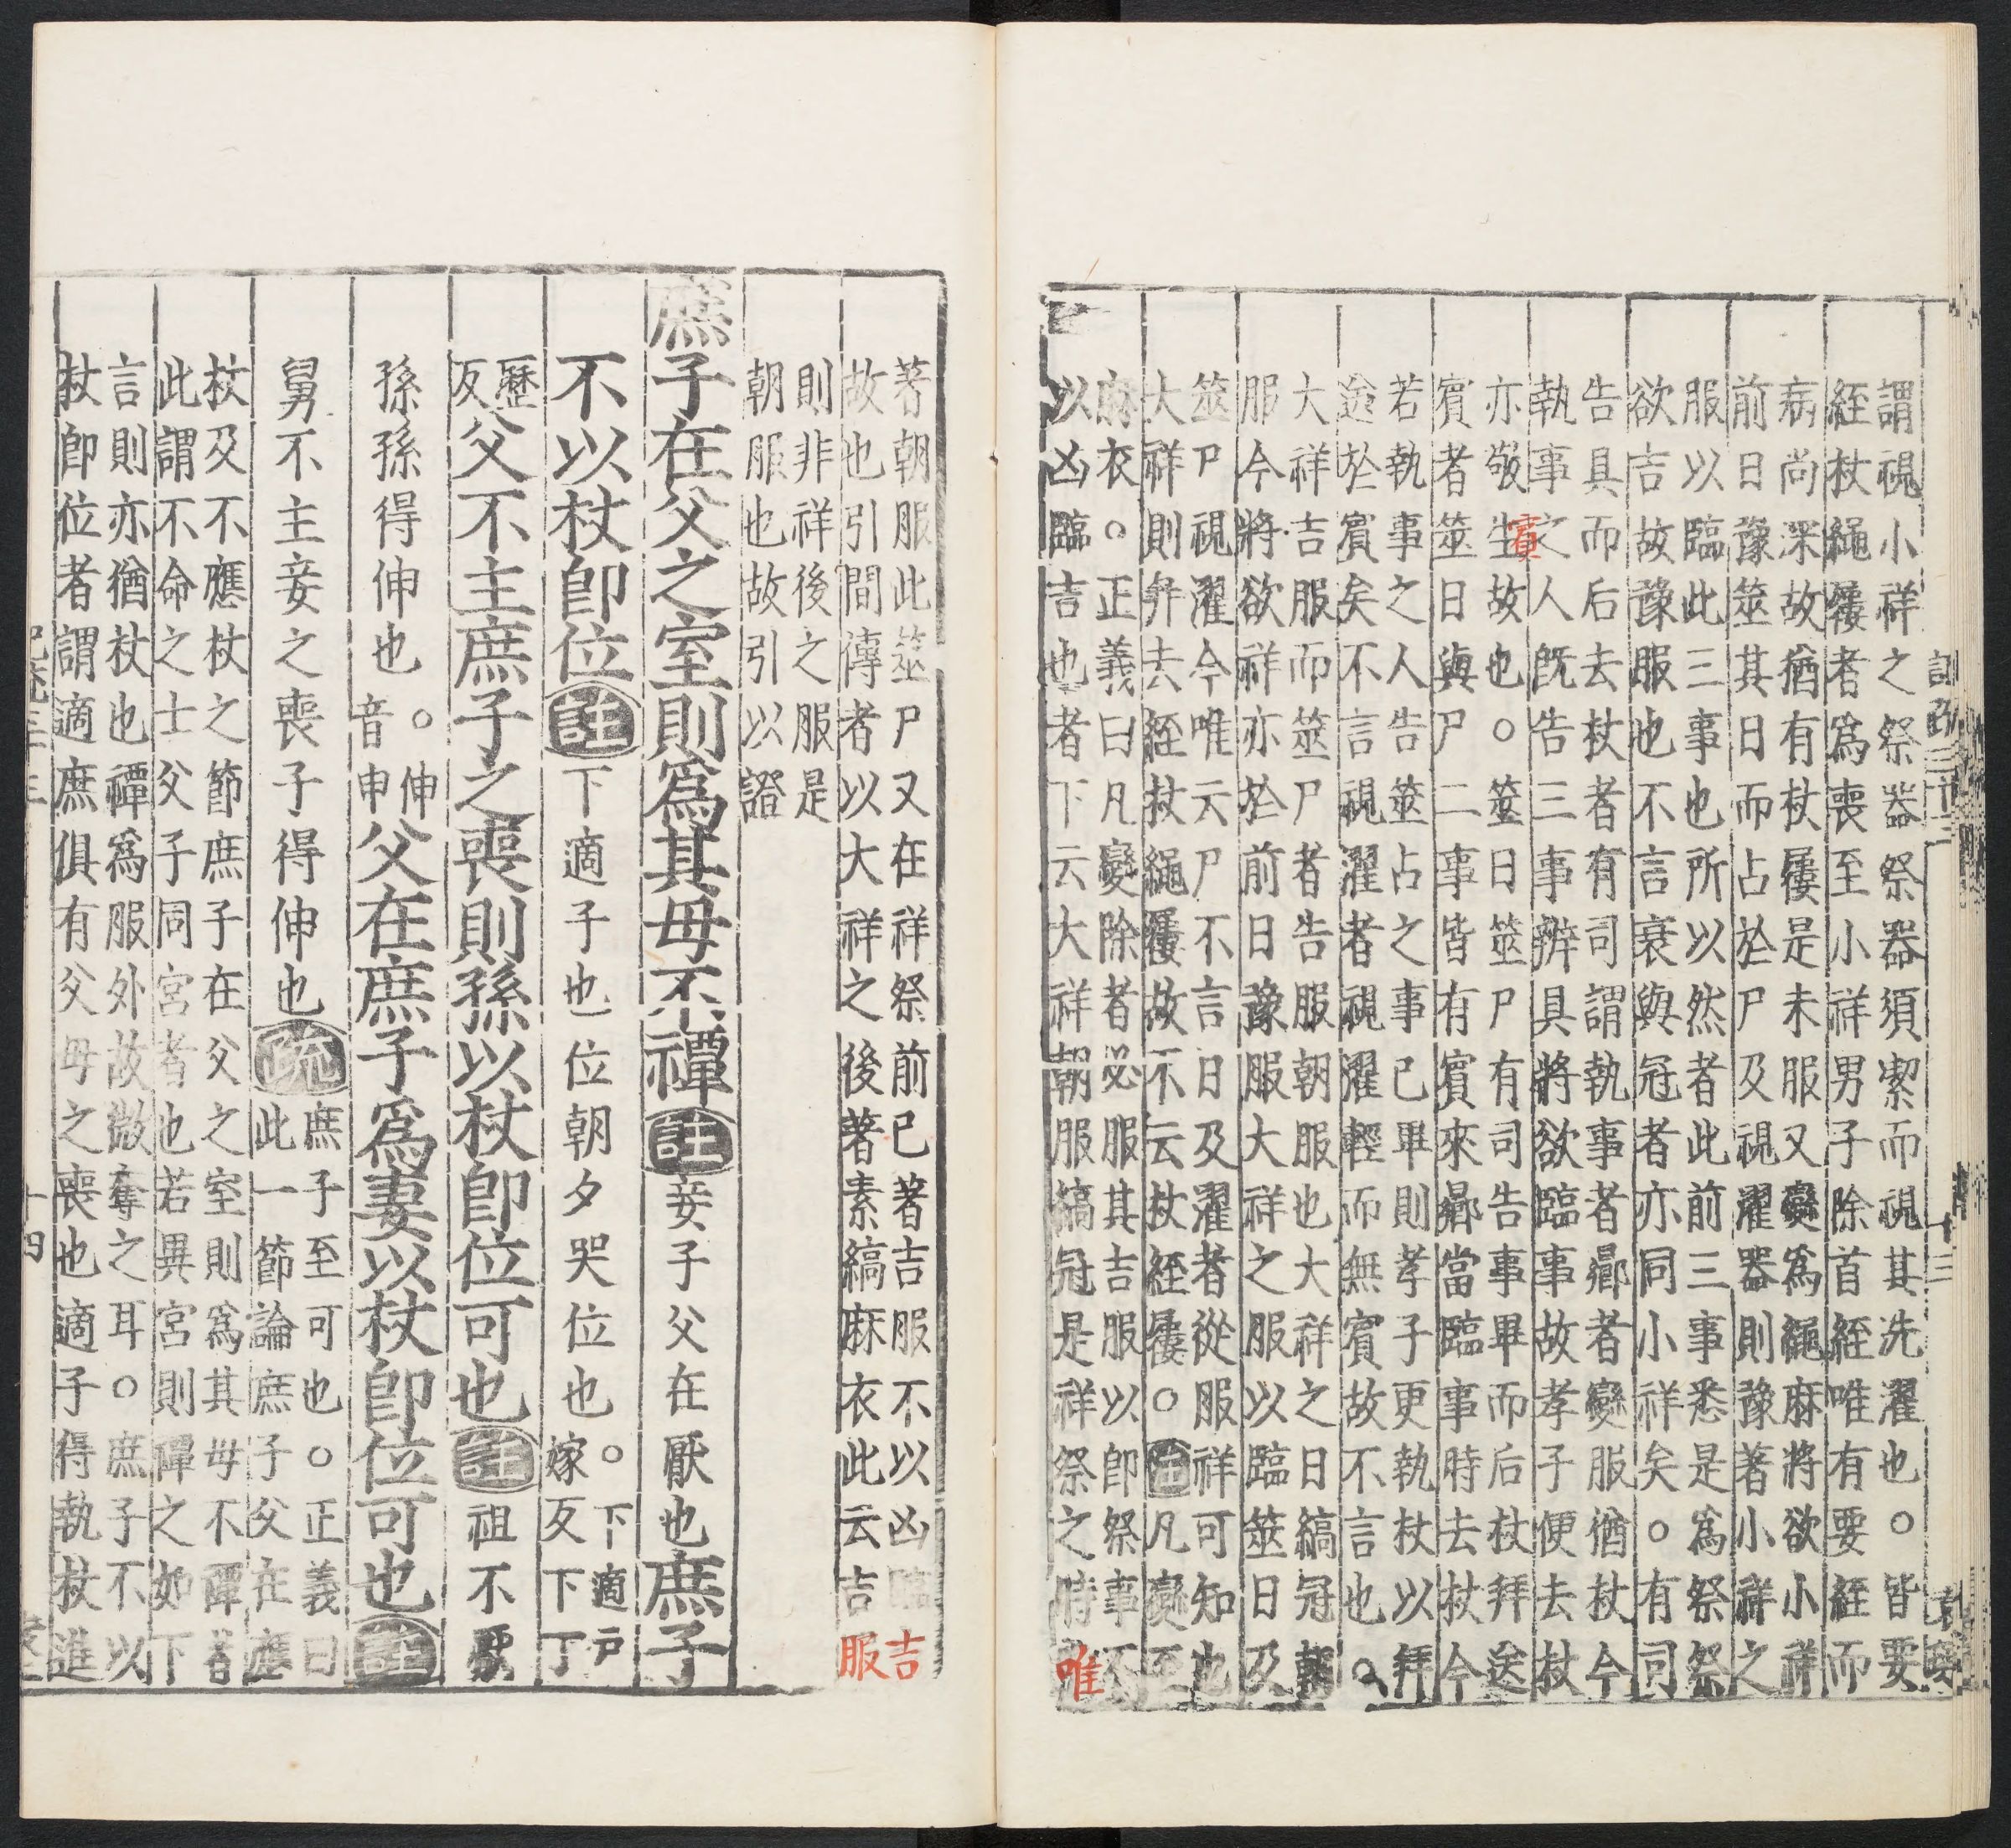 謂視小祥之祭器祭器須㓗而視其洗濯也○皆要
絰杖繩屨者爲喪至小祥男子除首絰唯有要絰而
病尚深故猶有杖屨是未服又變爲繩麻將欲小祥
前日豫筮其日而占於尸及視濯器則豫著小祥之
服以臨此三事也所以然者此前三事悉是爲祭祭
欲吉故豫服也不言衰與冠者亦同小祥矣○有司
告具而后去杖者有司謂執事者嚮者變服猶杖今
執事之人既告三事辨具將欲臨事故孝子便去杖
亦敬生故也○筮日筮尸有司告事畢而后杖拜送
賓
賓者筮日與尸二事皆有賓來嚮當臨事時去杖今
若執事之人告筮占之事已畢則孝子更執杖以拜
送於賓矣不言視濯者視濯輕而無賓故不言也○
大祥吉服而筮尸者告服朝服也大祥之日縞冠朝
服今將欲祥亦於前日豫服大祥之服以臨筮日及
筮尸視濯今唯云尸不言日及濯者從服祥可知也
大祥則弁去絰杖繩屨故不云杖絰屨○註凡變至
麻衣○正義曰凡變除者必服其吉服以卽祭事不
以凶臨吉也者下云大祥朝服縞冠是祥祭之時
唯
著朝服此筮尸又在祥祭前已著吉服不以凶臨吉
故也引間傳者以大祥之後著素縞麻衣此云吉服
則非祥後之服是
朝服也故引以證
庶子在父之室則爲其母不禫註妾子父在厭也庶子
不以杖卽位註下適子也位朝夕哭位也○下適戶
嫁反下丁
歷
反父不主庶子之喪則孫以杖卽位可也註祖不厭
孫孫得伸也○伸
音申父在庶子爲妻以杖卽位可也註
舅不主妾之喪子得伸也疏庶子至可也○正義曰
此一節論庶子父在應
杖及不應杖之節庶子在父之室則爲其母不禫者
此謂不命之士父子同宮者也若異宮則禫之如下
言則亦猶杖也禫爲服外故微奪之耳○庶子不以
杖卽位者謂適庶俱有父母之喪也適子得執杖進